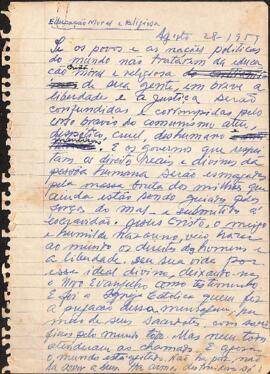 Educação Moral e Religiosa
Agosto 28-1959
Se os povos e as nações politicas
do mundo não trataram da educa
ção moral e religiosa
de sua gente, em breve a
liberdade e a justiça serão
confundidas e corrompidas pelo
do comunismo ateu,
despótico, cruel, deshumano
E os governos que respei
tam os direitos reais e divinos da
pessoa humana serão esmagados
pela massa bruta dos milhões que
ainda estão sendo guiados pelas
forças do mal e submetidos à
escravidão. Jesus Cristo, o meigo
e humilde Nazareno, veio trazer
ao mundo os direitos do homem e
a liberdade, deu sua vida por
esse ideal divino, deixando-nos
o Novo Evangelho como testemunho
E foi a Igreja Católica quem fez
a pregação dessa mensagem, por
meio de seus Sacerdotes, com sacri
ficios pelo mundo todo. Mas nem todos
atenderam ao chamado. E agora
o mundo está agitado. Não ha paz, não
ha amor